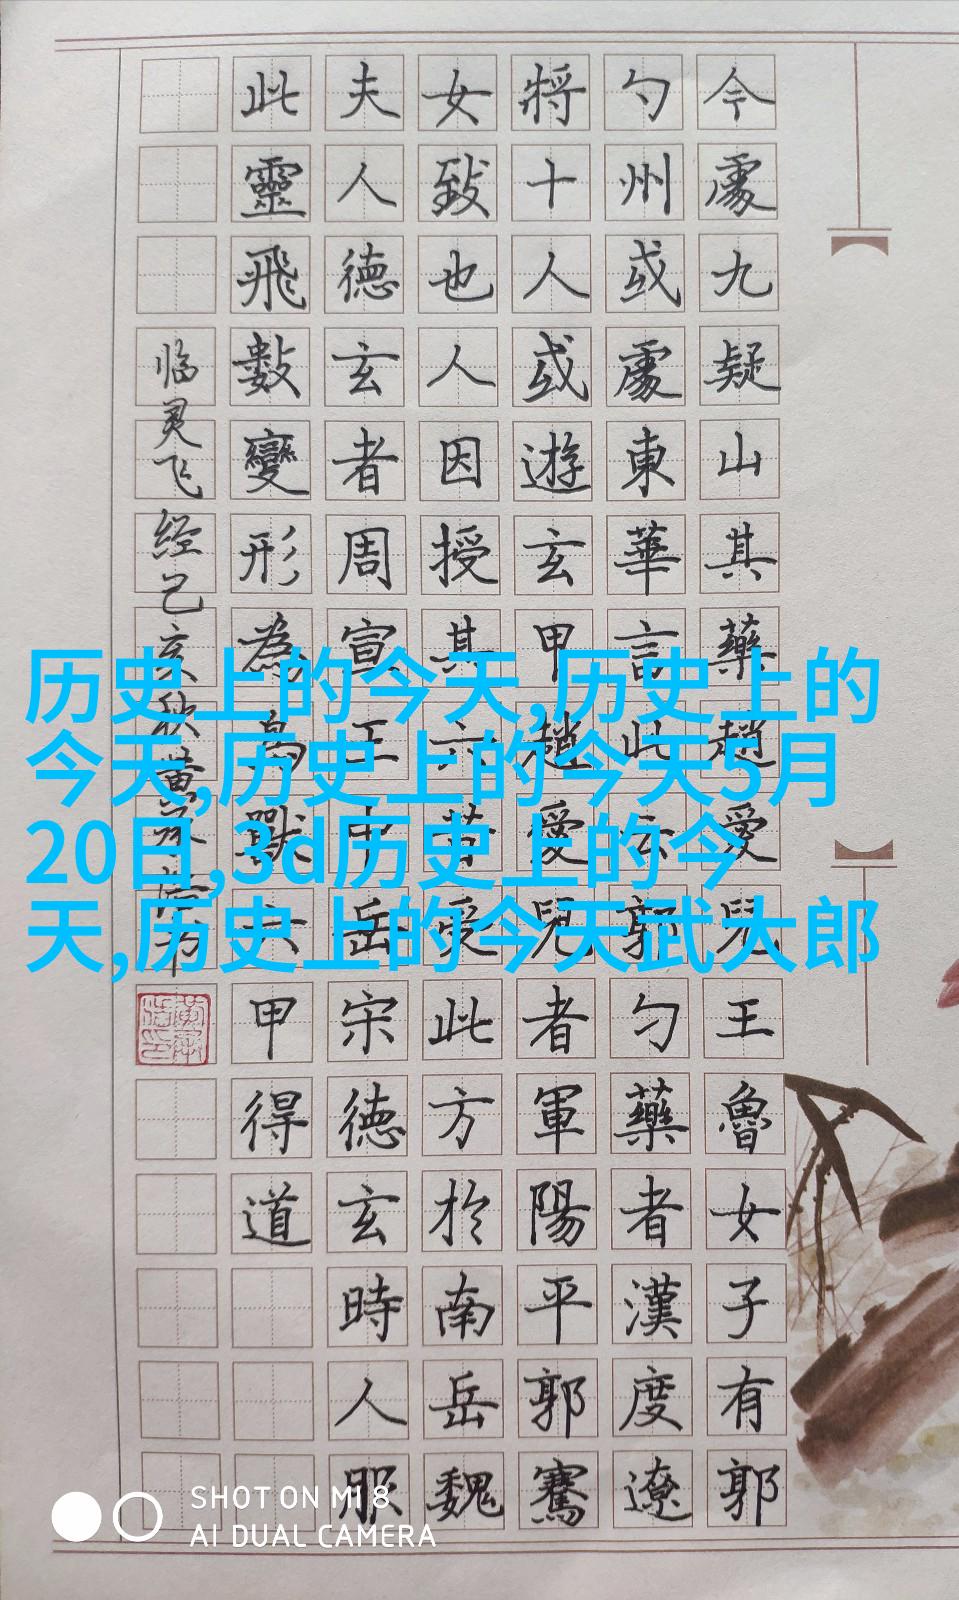 今處九疑山其藥趙愛兒王魯女子有郭
勺州或處東華言此云郭勺藥者漢度遼
將十人或遊玄甲趙愛兒者軍陽平郭騫
女致也人因授其六受此方於南岳魏
夫人德玄者周宣王中岳宋德玄時人服
此靈飛數變形為鳥獸六甲得道
临灵飞经己亥秋黄
历史上的今天,历史上的
今天,历史上的今天5月
20日,3d历史上的今
天,历史上的今天武大郎
SHOT ON MI 8
AI DUAL CAMERA